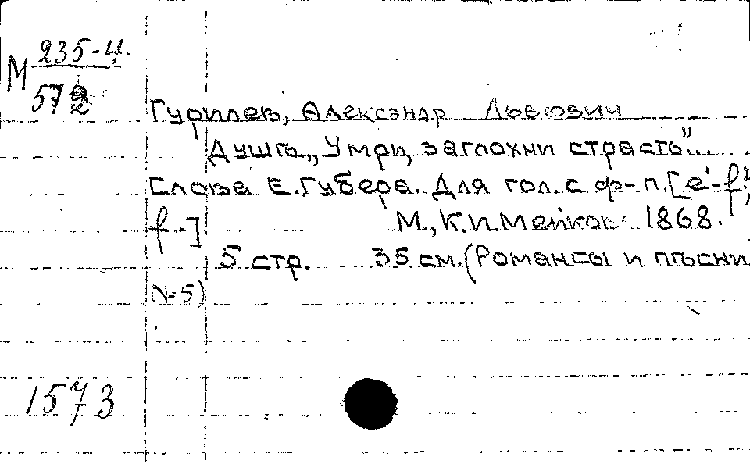 М 235-И.
572
Гурилев, Александр Львович
Душа. „Умри, заглохни страсть"...
Слова Е. Губера. Для гол. с ф-п. [e'-f'';
f-]
М., К.И. Мейков 1868.
5 стр. 35 см. (Романсы и пѣсни
№5)
1573